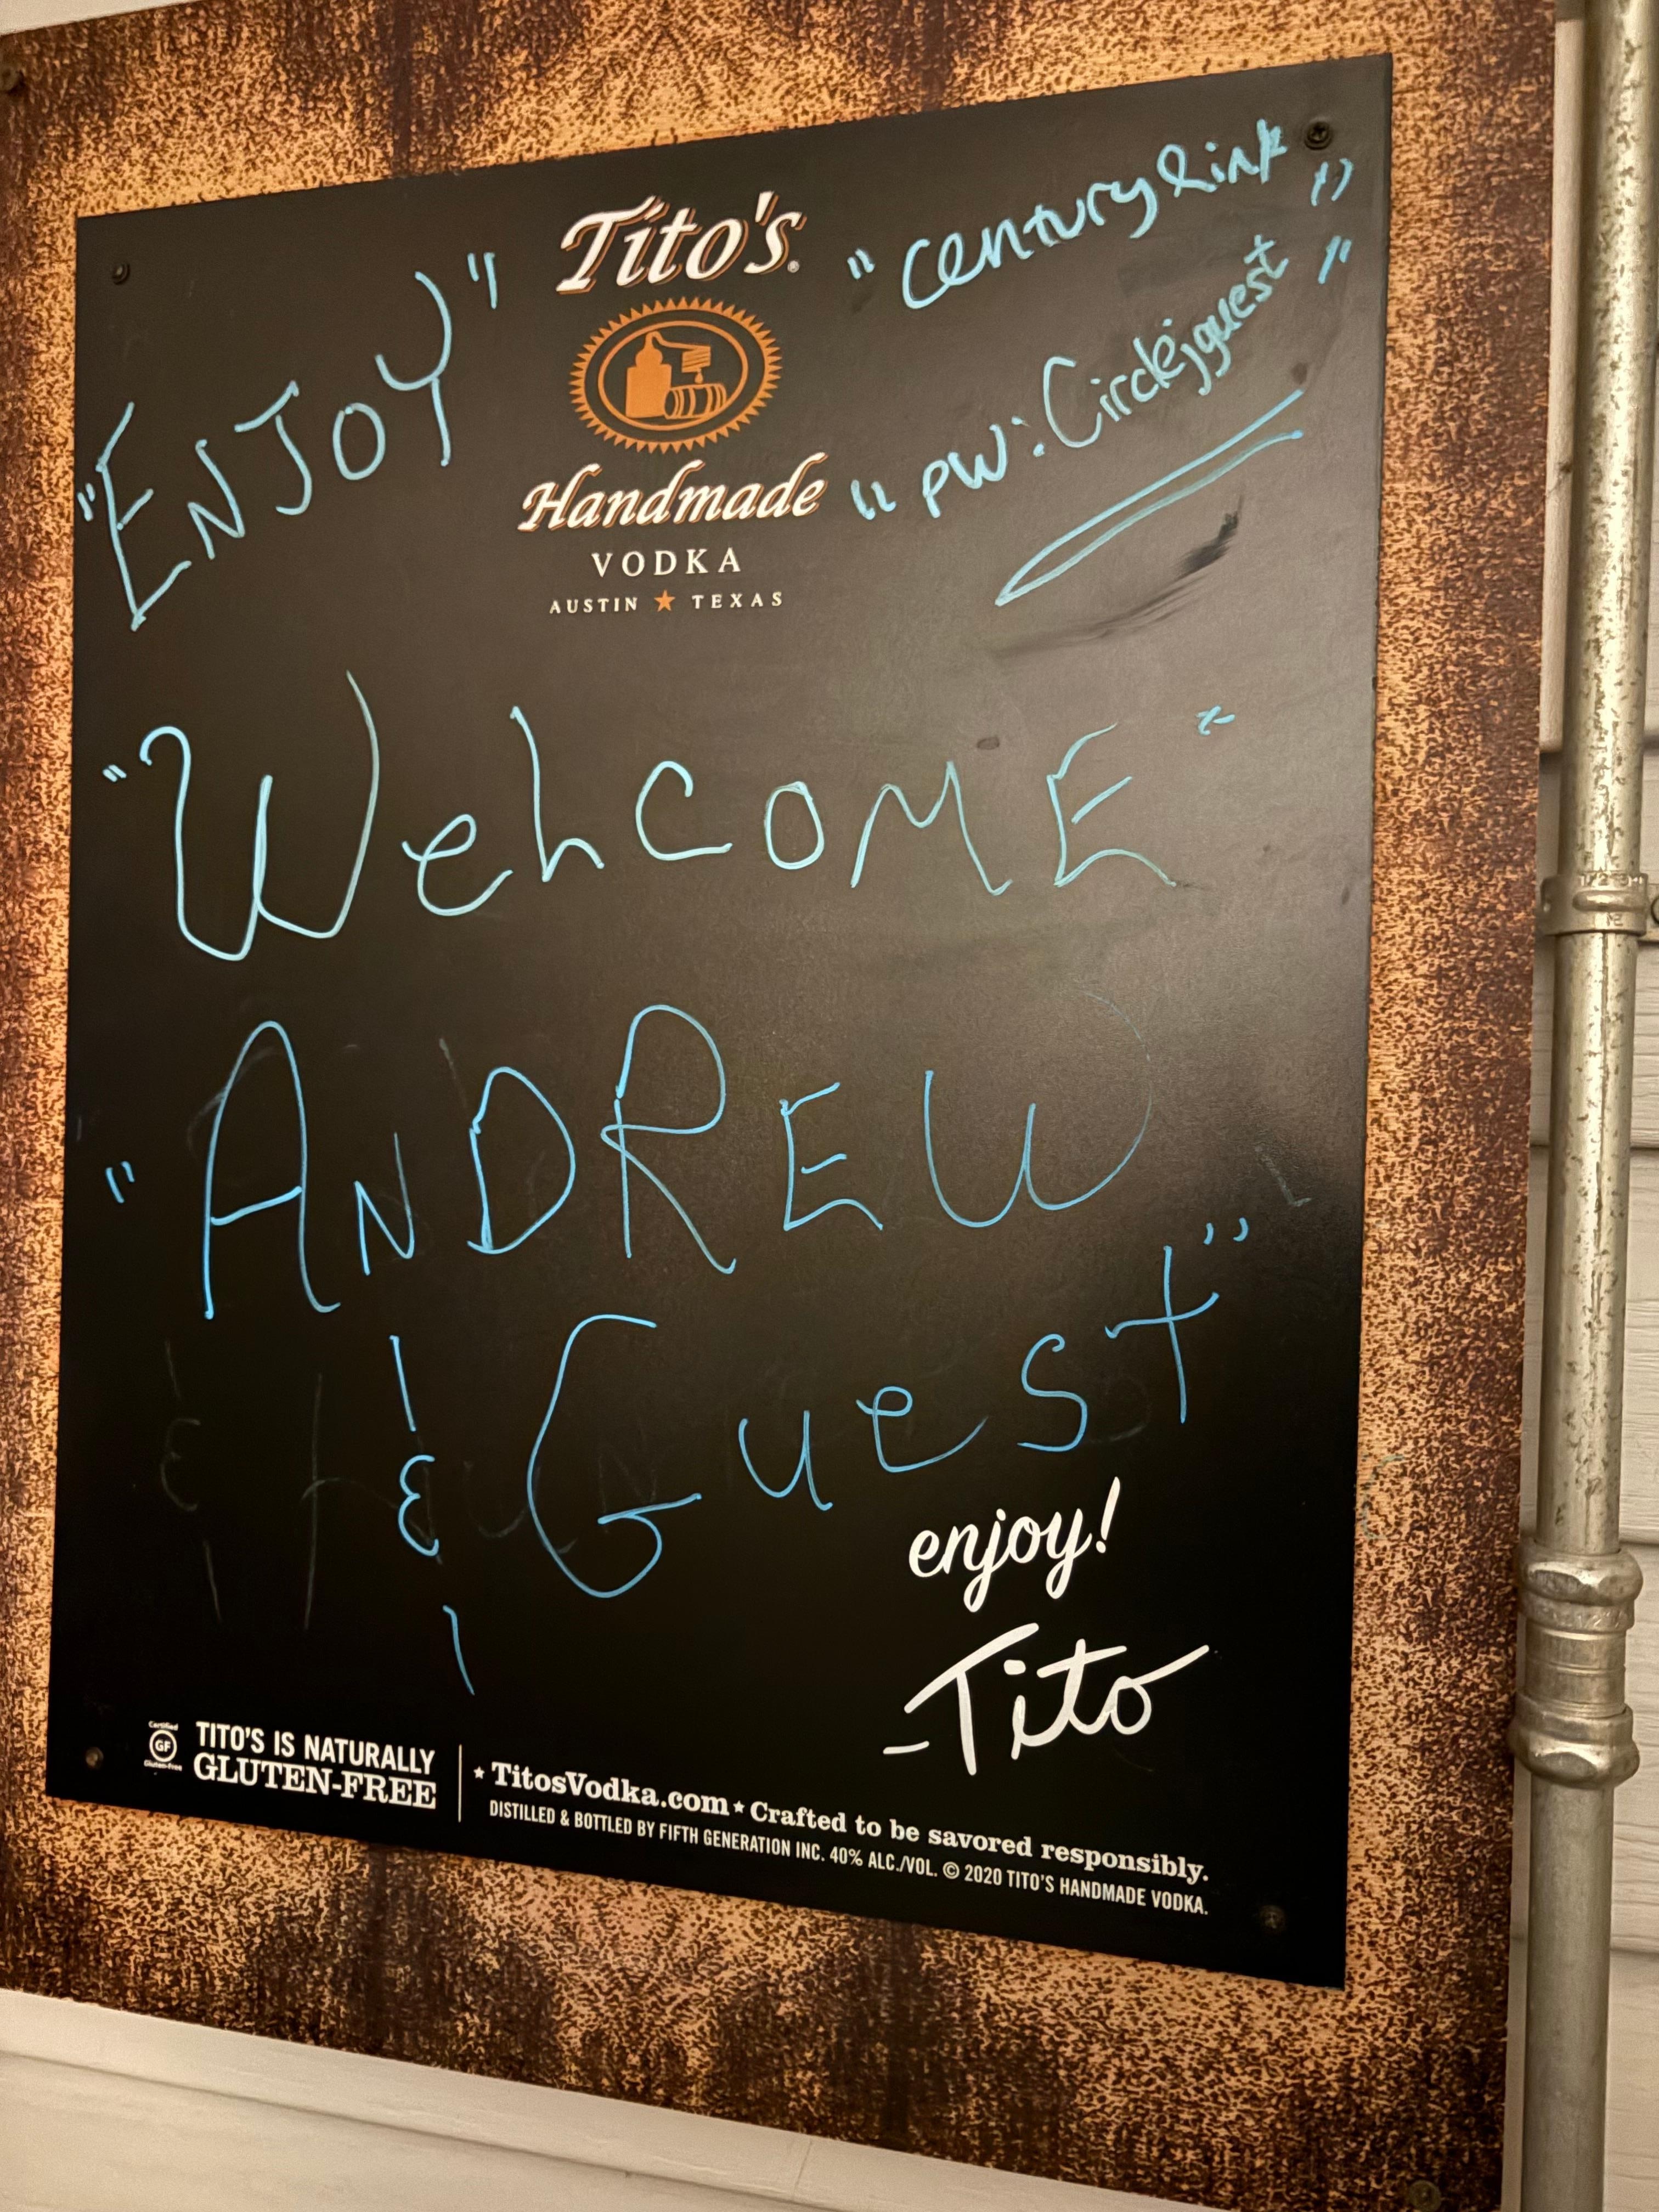 "ENJOY"
Tito's®
"CenturyLink"
Handmade
"PW: Circlejguest"
VODKA
AUSTIN ★ TEXAS
"WelCOME"
"ANDREW
& Guest"
enjoy!
-Tito
Certified
GF
Gluten-Free
TITO'S IS NATURALLY
GLUTEN-FREE
★ TitosVodka.com ★ Crafted to be savored responsibly.
DISTILLED & BOTTLED BY FIFTH GENERATION INC. 40% ALC./VOL. © 2020 TITO'S HANDMADE VODKA.